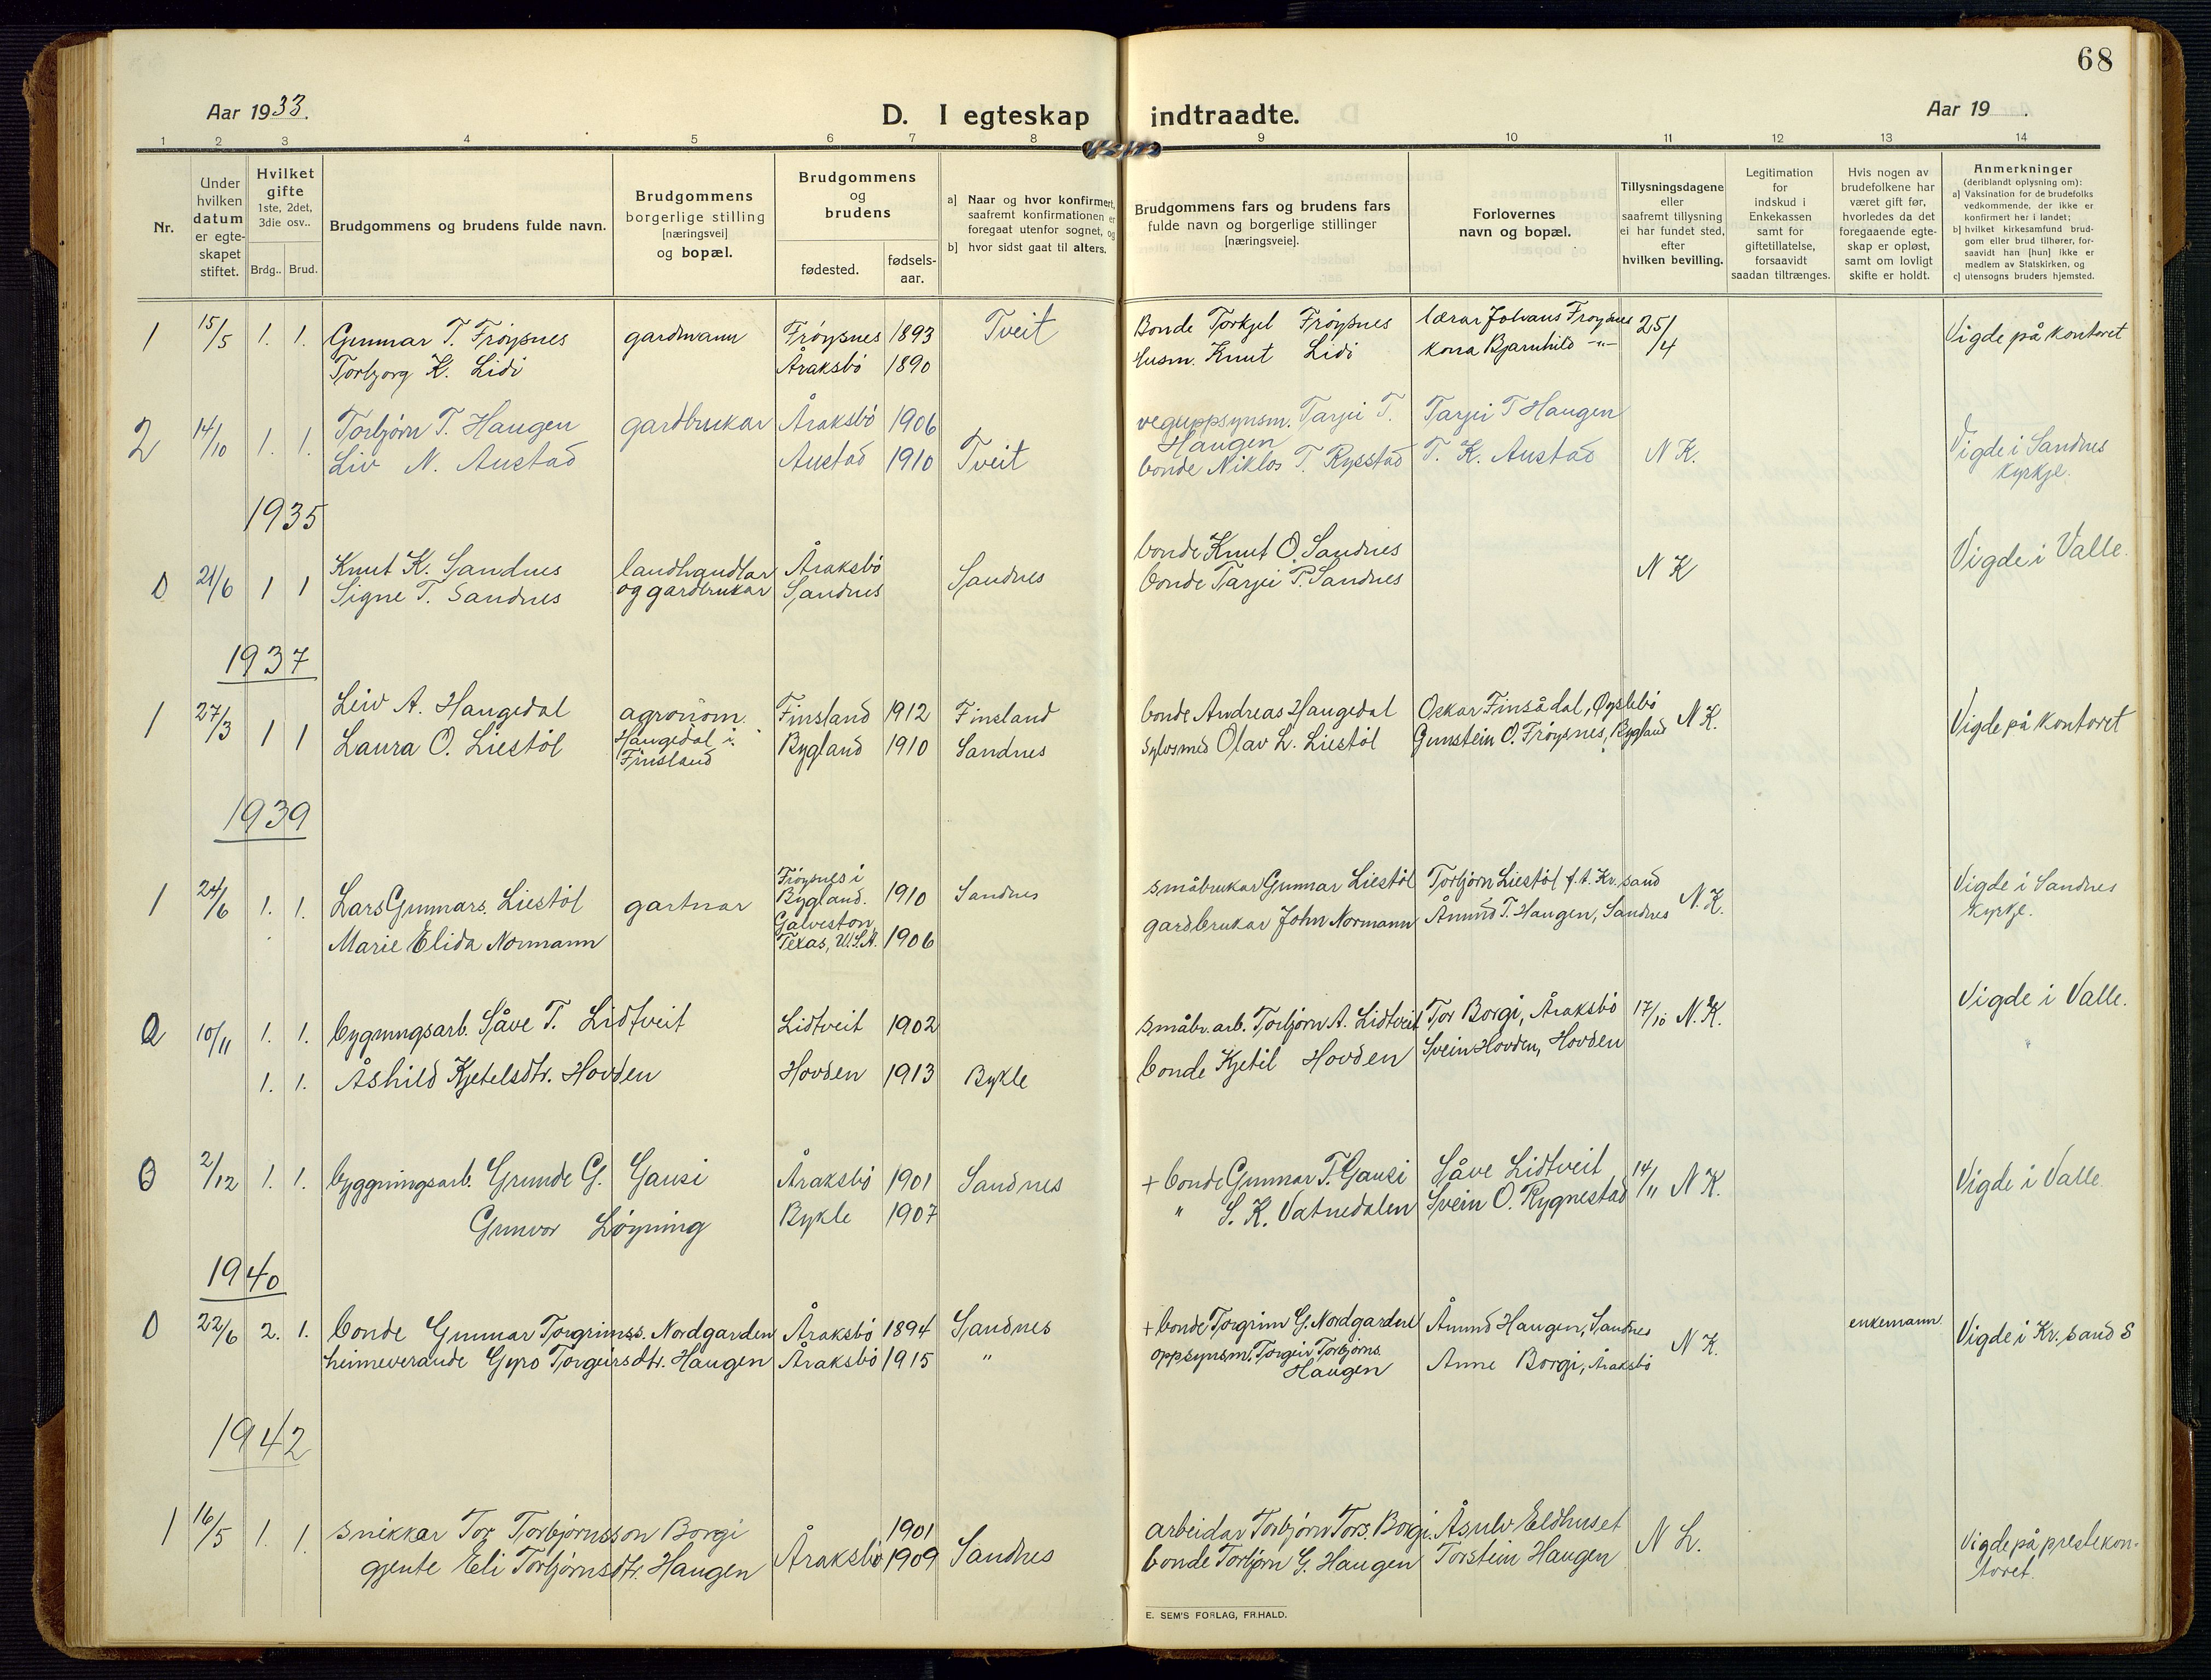 68
Aar 1933.
D. I egteskap indtraadte.
Aar 19 .
1 2 3 4 5 6 7 8 9 10 11 12 13 14
Nr.
Under hvilken datum er egte-skapet stiftet.
Hvilket gifte
1ste, 2det, 3die osv..
Brdg.. Brud.
Brudgommens og brudens fulde navn.
Brudgommens borgerlige stilling [næringsvei] og bopæl.
Brudgommens og brudens
fødested.
fødsels-aar.
a) Naar og hvor konfirmert, saafremt konfirmationen er foregaat utenfor sognet, og
b) hvor sidst gaat til alters.
Brudgommens fars og brudens fars fulde navn og borgerlige stillinger [næringsveie].
Forlovernes navn og bopæl.
Tillysningsdagene eller saafremt tillysning ei har fundet sted, efter hvilken bevilling.
Legitimation for indskud i Enkekassen samt for giftetillatelse, forsaavidt saadan tiltrænges.
Hvis nogen av brudefolkene har været gift før, hvorledes da det foregaaende egte-skap er opløst, samt om lovligt skifte er holdt.
Anmerkninger
(deriblandt oplysning om):
a) Vaksination for de brudefolks vedkommende, der ikke er konfirmert her i landet;
b) hvilket kirkesamfund brud-gom eller brud tilhører, for-saavidt han [hun] ikke er medlem av Statskirken, og
c) utensogns bruders hjemsted.
1 15/5 1. 1. Gunnar T. Frøysnes gardmann Frøysnes 1893 Tveit Bonde Torkjel Frøysnes lærar Johans Frøysnes 25/4 Vigde på kontoret
Torbjorg K. Lidi Åraksbö 1890 Husm. Knut Lidi kona Bjarnhild -"-
2 14/10 1. 1. Torbjørn T. Haugen gardbrukar Åraksbö 1906 veguppsynsm. Tarjei T. Haugen Tarjei T Haugen
Liv N. Austad Austad 1910 Tveit bonde Niklos T. Rysstad T. K. Austad N K. Vigde i Sandnes kyrkje.
1935
21/6 1 1 Knut K. Sandnes landhandlar og gardbrukar Åraksbö Sandnes bonde Knut O. Sandnes N K Vigde i Valle.
Signe T. Sandnes Sandnes bonde Tarjei P. Sandnes
1937
1 27/3 1 1 Leiv A. Haugedal agronom. Haugedal i Finsland Finsland 1912 Finsland bonde Andreas Haugedal Oskar Finsådal, Øyslebö N K. Vigde på kontoret
Laura O. Liestöl Bygland 1910 Sandnes sylvsmed Olav L. Liestöl Gunstein O. Frøysnes, Bygland
1939
1 24/6 1. 1. Lars Gunnars. Liestöl gartnar Frøysnes i Bygland. 1910 Sandnes småbrukar Gunnar Liestöl Torbjörn Liestöl f.t. Kr.sand N. K. Vigde i Sandnes kyrkje.
Marie Elida Normann Galveston, Texas, U.S.A. 1906 gardbrukar John Normann Åmund T. Haugen, Sandnes
2 10/11 1. 1. bygningsarb. Såve T. Lidtveit Lidtveit 1902 småbr.arb. Torbjörn A. Lidtveit Tor Borgi, Åraksbö 17/10 N. K. Vigde i Valle.
1. 1. Åshild Kjetelsdtr. Hovden Hovden 1913 Bykle bonde Kjetil Hovden Svein Hovden, Hovden
3 2/12 1. 1. byggningsarb. Grunde G. Gausi Åraksbö 1901 Sandnes + bonde Gunnar T. Gausi Såve Lidtveit 14/11 N K. Vigde i Valle.
Gunvor Løyning Bykle 1907 " S. K. Vatnedalen Svein O. Rygnestad
1940
22/6 2. 1. bonde Gunnar Torgrimss. Nordgarden Åraksbö 1894 Sandnes + bonde Torgrim G. Nordgarden Åmund Haugen, Sandnes N K. enkemann. Vigde i Kr.sand S
heimeverande Gyro Torgeirsdtr. Haugen Åraksbö 1915 " oppsynsm. Torgeir Torbjörns. Haugen Anne Borgi, Åraksbö
1942
1 16/5 1. 1. snikkar Tor Torbjörnsson Borgi Åraksbö 1901 Sandnes arbeidar Torbjörn Tors. Borgi. Åsulv Eldhuset N L. Vigde på prestekon-toret.
gjente Eli Torbjörnsdtr. Haugen 1909 bonde Torbjörn G. Haugen Torstein Haugen
E. SEM'S FORLAG, FR.HALD.